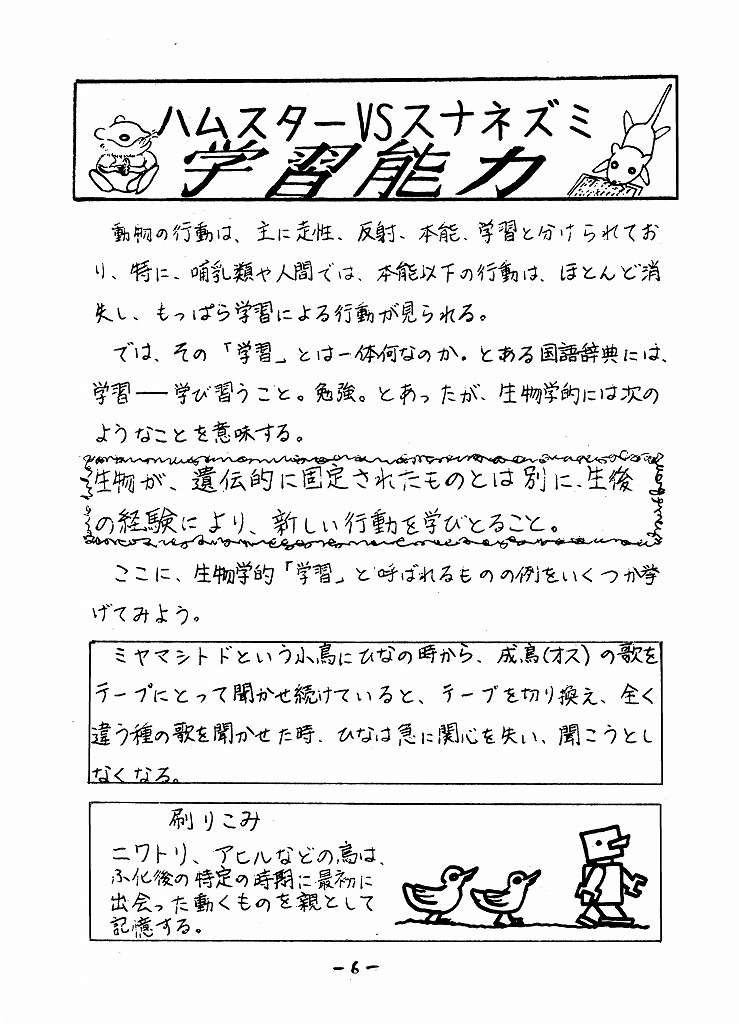 ハムスターVSスナネズミ
学習能力
動物の行動は、主に走性、反射、本能、学習と分けられてお
り、特に、哺乳類や人間では、本能以下の行動は、ほとんど消
失し、もっぱら学習による行動が見られる。
では、その「学習」とは一体何なのか。とある国語辞典には、
学習――学び習うこと。勉強。とあったが、生物学的には次の
ようなことを意味する。
生物が、遺伝的に固定されたものとは別に、生後
の経験により、新しい行動を学びとること。
ここに、生物学的「学習」と呼ばれるものの例をいくつか挙
げてみよう。
ミヤマシトドという小鳥にひなの時から、成鳥(オス)の歌を
テープにとって聞かせ続けていると、テープを切り換え、全く
違う種の歌を聞かせた時、ひなは急に関心を失い、聞こうとし
なくなる。
刷りこみ
ニワトリ、アヒルなどの鳥は、
ふ化後の特定の時期に最初に
出会った動くものを親として
記憶する。
-6-